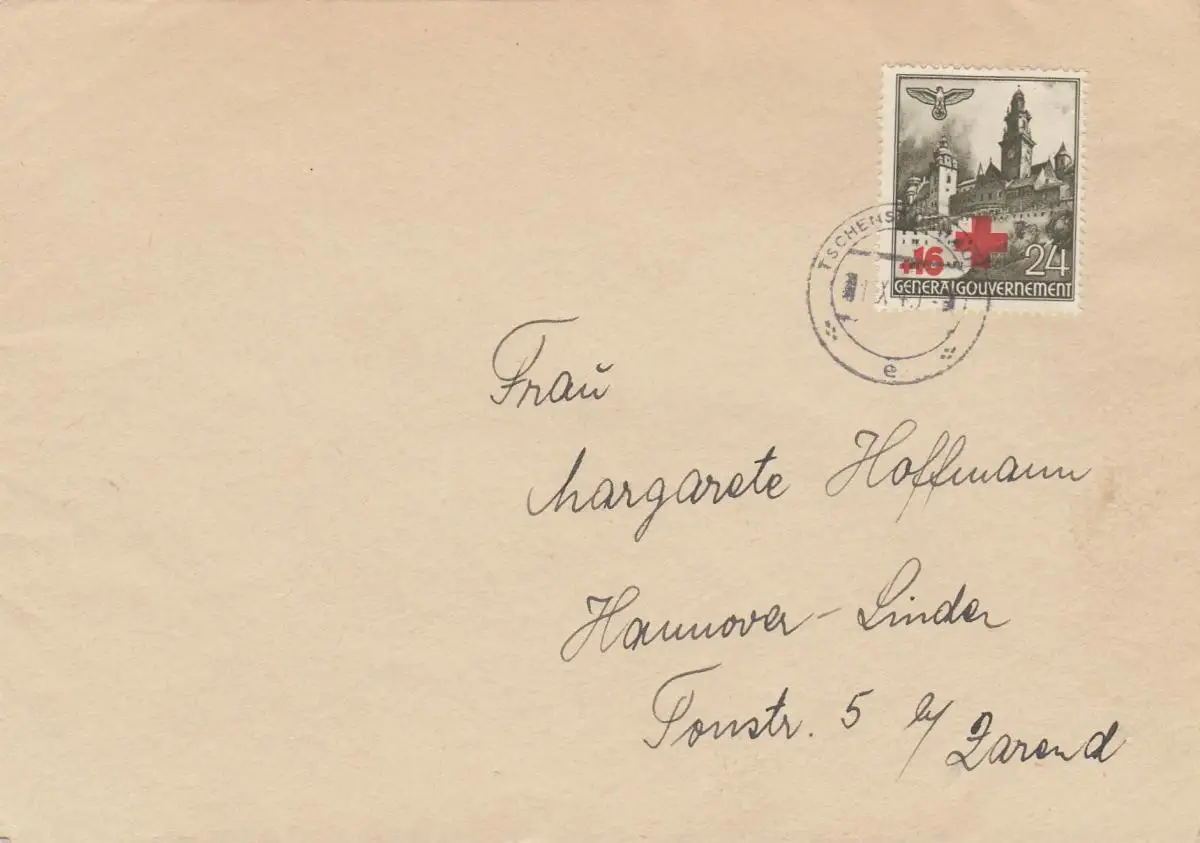 +16
24
GENERALGOUVERNEMENT
TSCHENS
e
Frau
Margarete Hoffmann
Hannover-Linder
Tonstr. 5 b/ Zarend